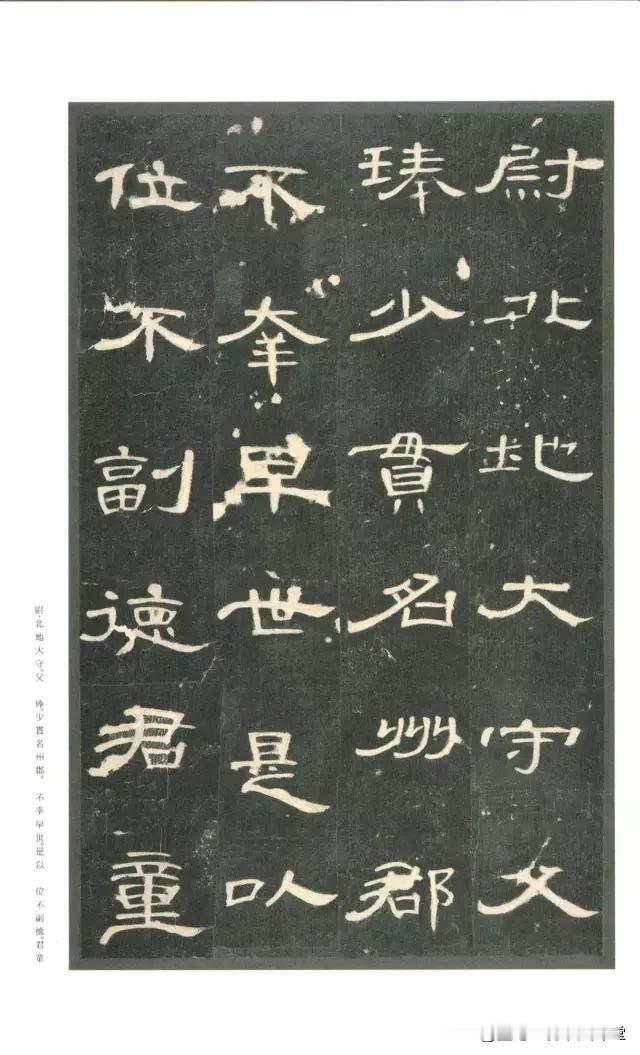 尉北地大守父
琫少貫名州郡
不幸早世是以
位不副德君童
尉、北地大守。父 琫。少貫名州郡。 不幸早世。是以 位不副德。君童